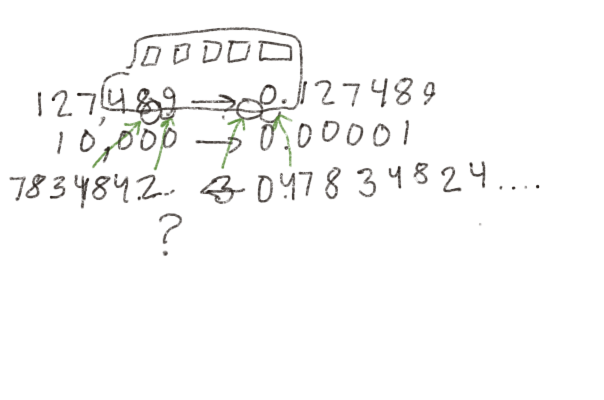 127,489 → 0.127489
10,000 → 0.00001
7834842.. ← 0.47834824....
?